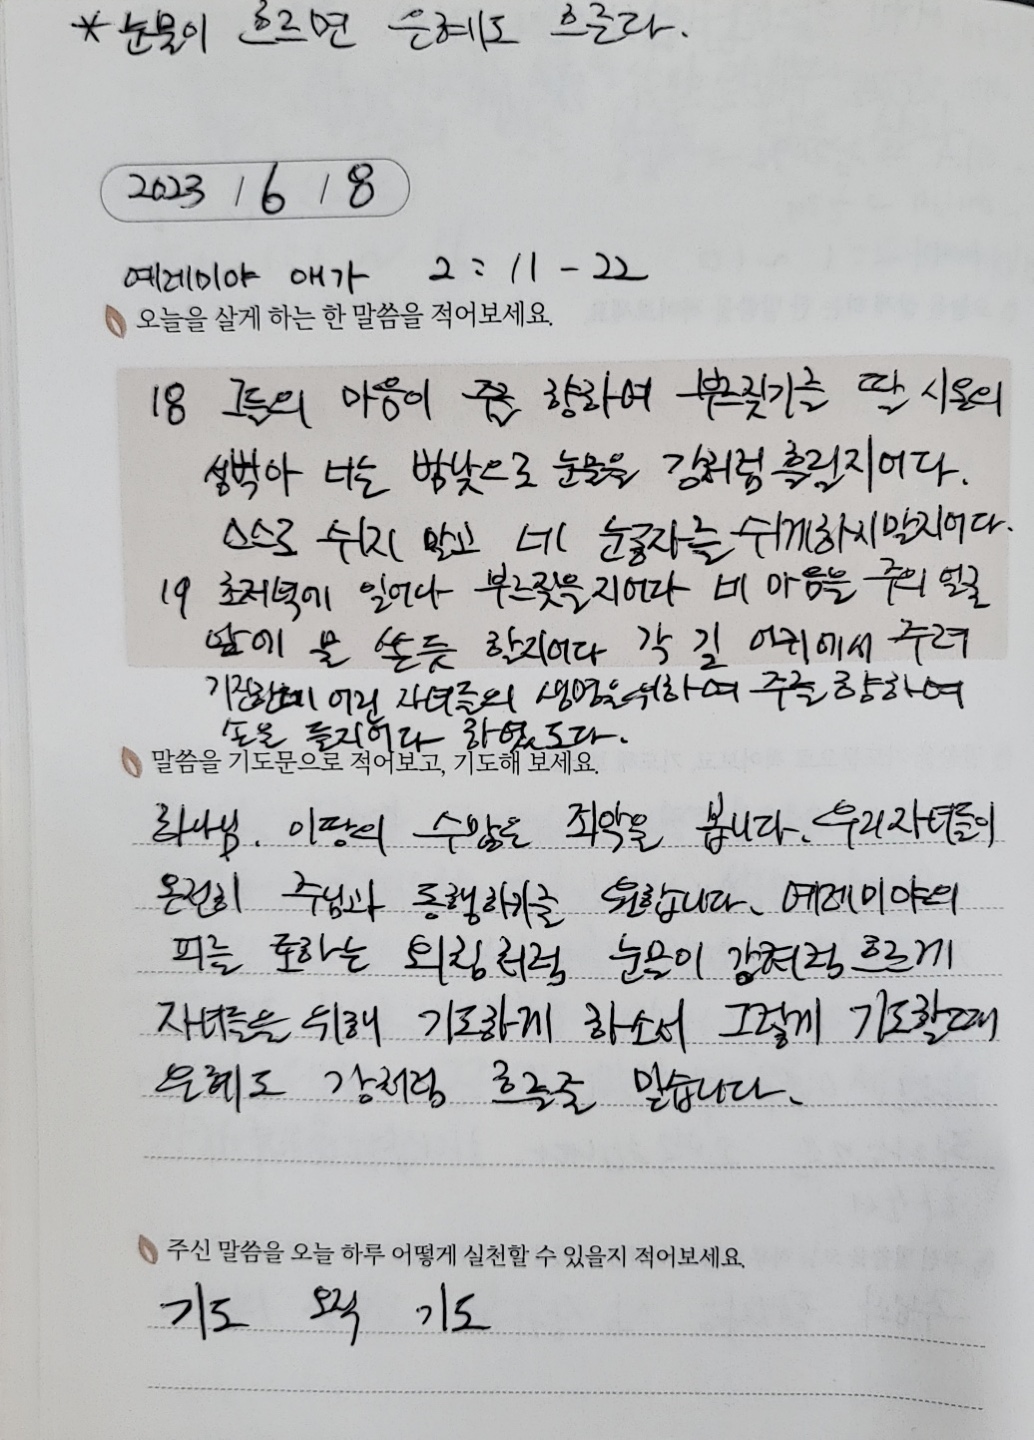 * 눈물이 흐르면 은혜도 흐른다.
2023 / 6 / 8
예레미야 애가 2:11-22
오늘을 살게 하는 한 말씀을 적어보세요.
18 그들의 마음이 주를 향하여 부르짖기를 딸 시온의
성벽아 너는 밤낮으로 눈물을 강처럼 흘릴지어다.
스스로 쉬지 말고 네 눈동자를 쉬게하지말지어다.
19 초저녁에 일어나 부르짖을지어다 네 마음을 주의 얼굴
앞에 물 쏟듯 할지어다 각 길 어귀에서 주려
기진한 네 어린 자녀들의 생명을위하여 주를 향하여
손을 들지어다 하였도다.
말씀을 기도문으로 적어보고, 기도해 보세요.
하나님. 이땅의 수많은 죄악을 봅니다. 우리자녀들이
온전히 주님과 동행하기를 원합니다. 예레미야의
피를 토하는 외침처럼 눈물이 강처럼 흐르게
자녀들을 위해 기도하게 하소서 그렇게 기도할때
은혜도 강처럼 흐를줄 믿습니다.
주신 말씀을 오늘 하루 어떻게 실천할 수 있을지 적어보세요.
기도 오직 기도